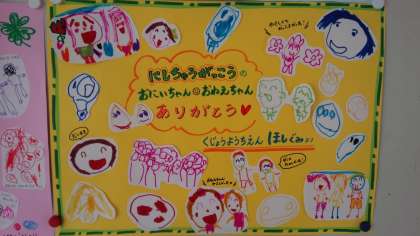 にしちゅうがっこうの
おにいちゃん♡おねえちゃん
ありがとう♥
くじょうようちえん ほしぐみより